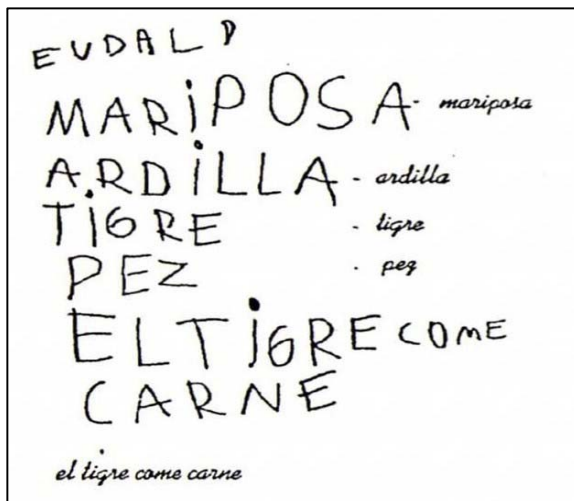 EUDALD
MARiPOSA - mariposa
ARDiLLA - ardilla
TiGRE - tigre
PEZ - pez
EL TiGRE COME
CARNE
el tigre come carne